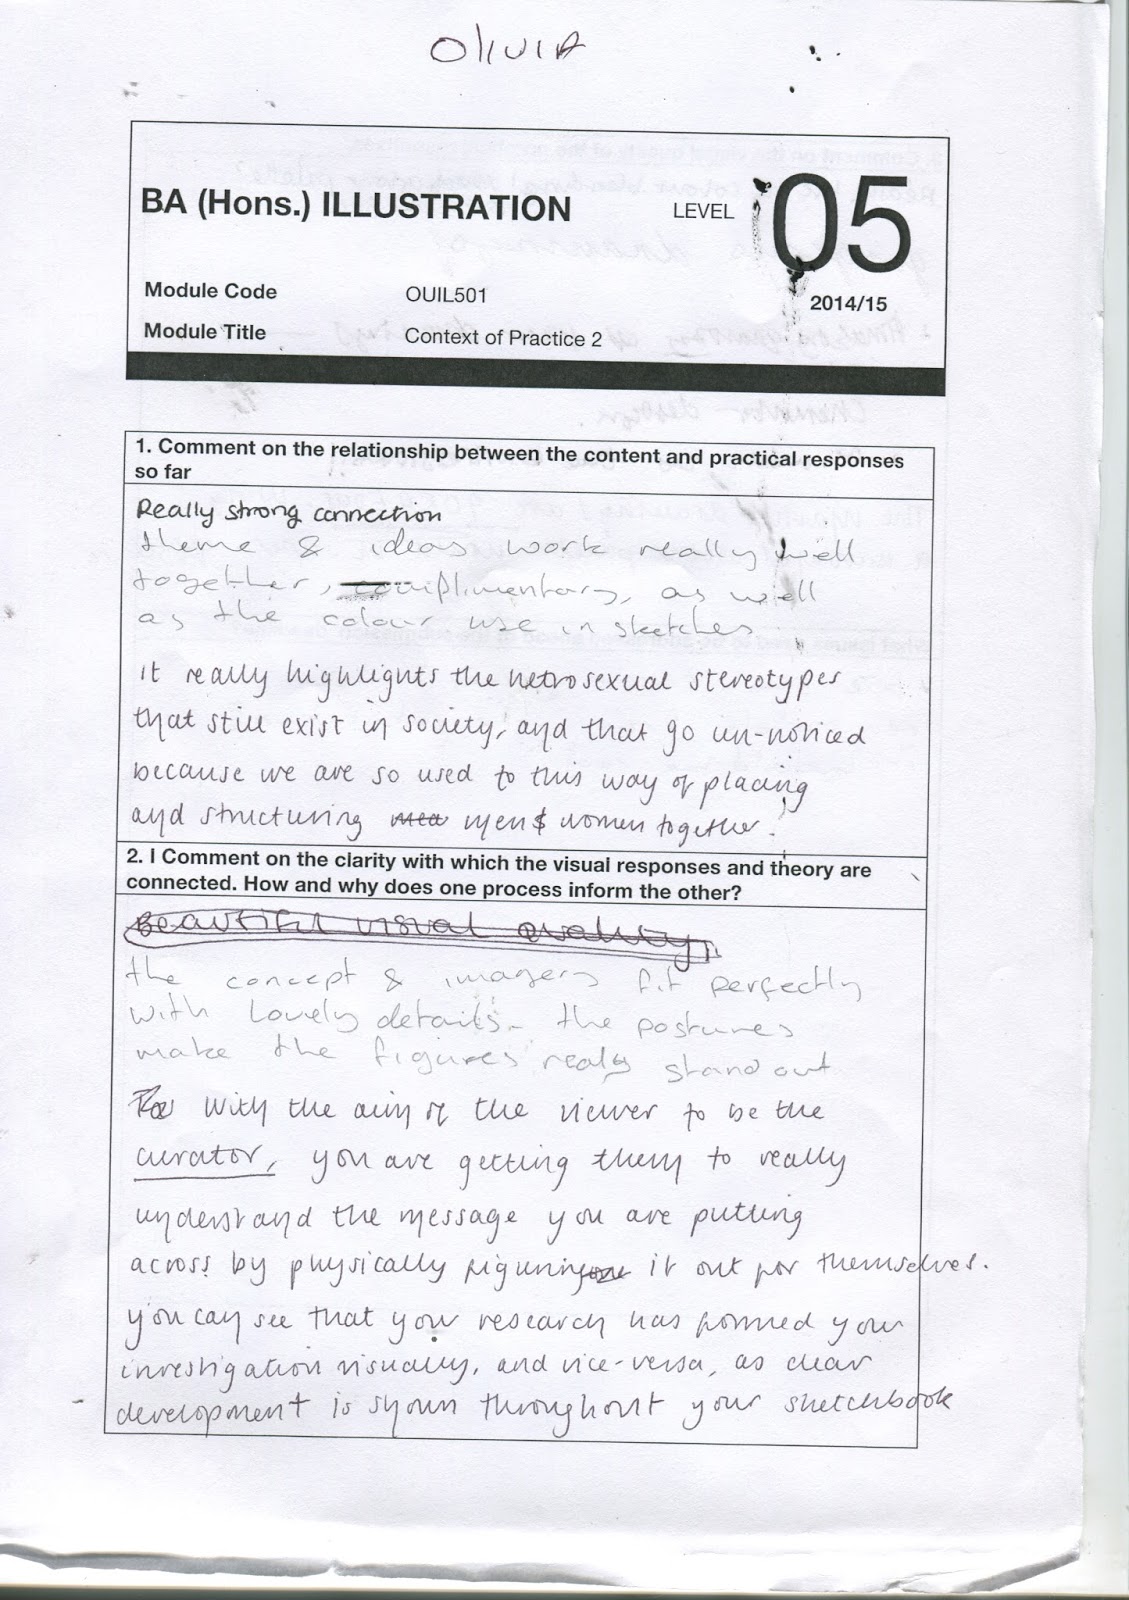 OLIVIA
BA (Hons.) ILLUSTRATION
LEVEL 05
Module Code OUIL501
2014/15
Module Title Context of Practice 2
1. Comment on the relationship between the content and practical responses
so far
Really strong connection
theme & ideas work really well
together, complimentary, as well
as the colour use in sketches.
it really highlights the hetrosexual stereotypes
that still exist in society, and that go un-noticed
because we are so used to this way of placing
and structuring men & women together.
2. I Comment on the clarity with which the visual responses and theory are
connected. How and why does one process inform the other?
Beautiful visual quality
the concept & imagery fit perfectly
with lovely details. the postures
make the figures really stand out
With the aim of the viewer to be the
curator, you are getting them to really
understand the message you are putting
across by physically figuring it out for themselves.
you can see that your research has formed your
investigation visually, and vice-versa, as clear
development is shown throughout your sketchbook